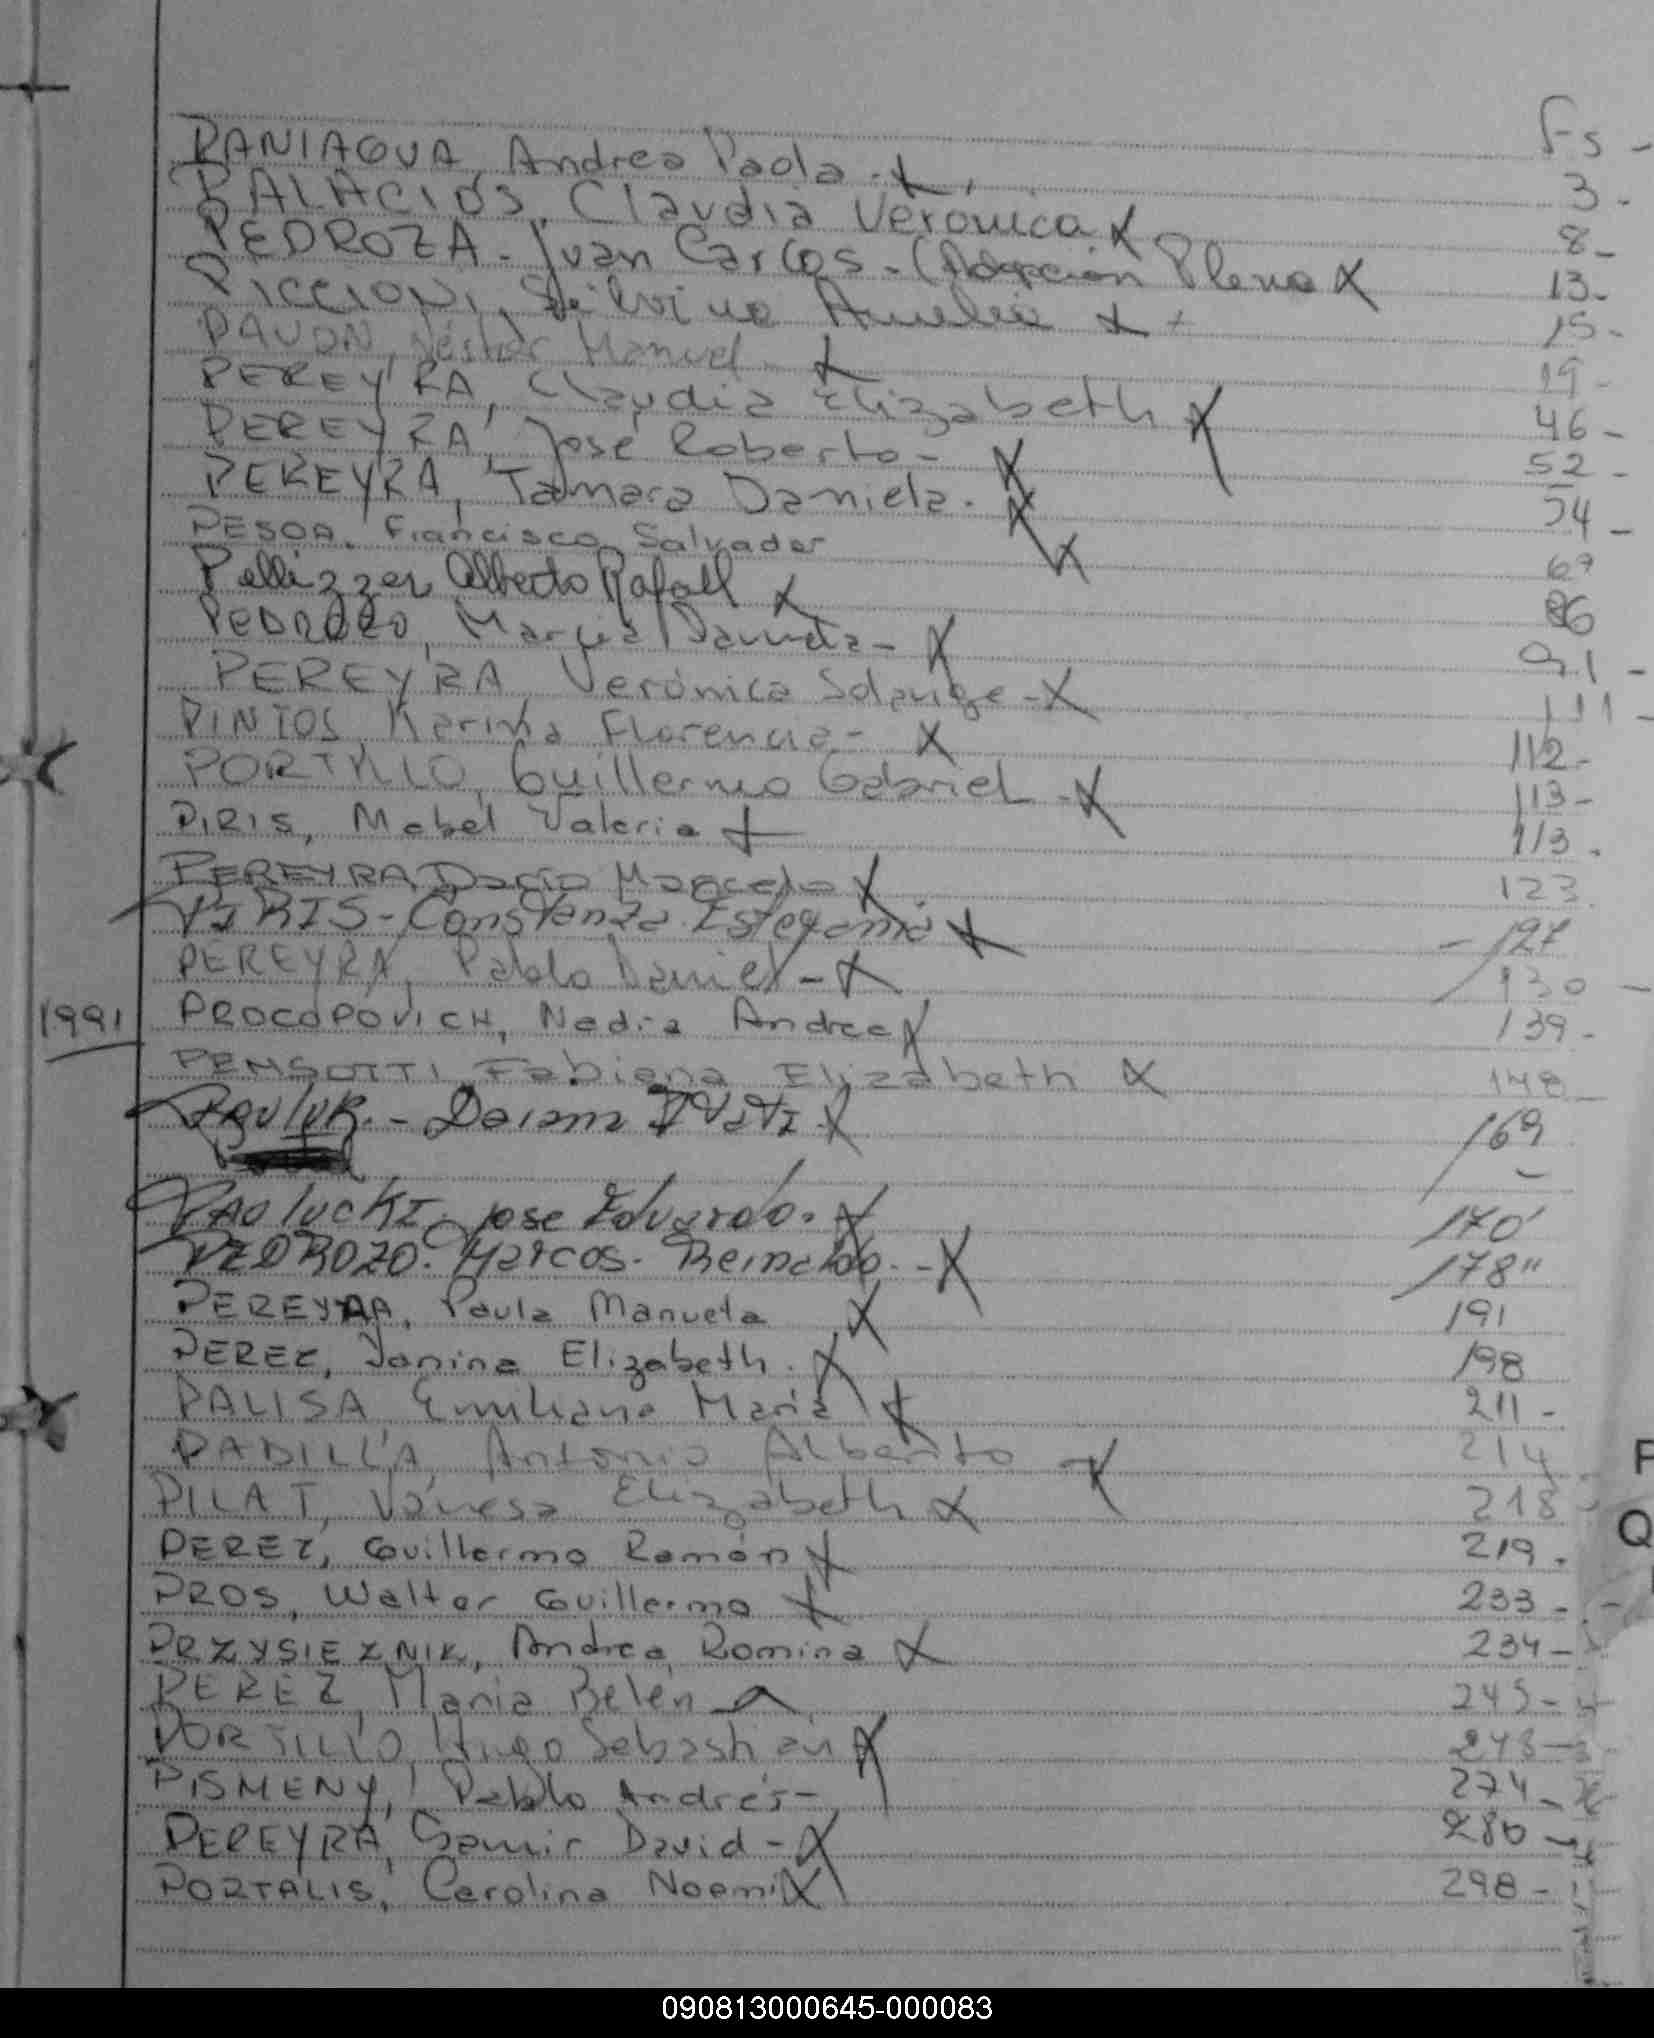 Fs -
PANIAGUA, Andrea Paola. X 3 -
PALACIOS, Claudia Verónica X 8 -
PEDROZA - Juan Carlos - (Adopción Plena X 13 -
PICCIONI, Silvina Amelia X + 15 -
PAVON, Néstor Manuel X 19 -
PEREYRA, Claudia Elizabeth X 46 -
PEREYRA, José Roberto - X 52 -
PEREYRA, Tamara Daniela - X 54 -
PESOA, Francisco Salvador X 67
Pellizzer Alberto Rafael X 86
PEDROZO, Daniela - X 91 -
PEREYRA, Verónica Solange - X 111 -
PINTOS, Karina Florencia - X 112 -
PORTILLO, Guillermo Gabriel - X 113 -
PIRIS, Mabel Valeria X 113 .
PEREYRA Dario Marcelo X 123
PIRIS - Constanza Estefania X - 127
PEREYRA, Pablo Daniel - X 130 -
1991 PROCOPOVICH, Nadia Andrea X 139 -
PENSOTTI, Fabiana Elizabeth X 148 -
- X 169
PAOLUCKI, Jose Eduardo. X 170
PEDROZO. Marcos. Reinaldo. - X 178"
PEREYRA, Paula Manuela X 191
PEREZ, Janina Elizabeth. X 198
PALISA Emiliana Maria X 211 -
PADILLA, Antonio Alberto X 214
PILAT, Vanesa Elizabeth X 218
PEREZ, Guillermo Ramón X 219 .
PROS, Walter Guillermo X 233 -
PRZYSIEZNIK, Andrea Romina X 234 -
PEREZ, Maria Belén 245 -
PORTILLO, Hugo Sebastián X 248 -
PISMENY, Pablo Andrés - 274 -
PEREYRA, Samir David - X 280 -
PORTALIS, Carolina Noemi X 298 -
P
Q
090813000645-000083